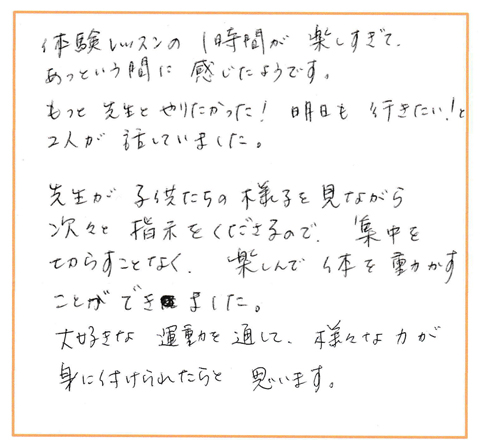 体験レッスンの 1時間が 楽しすぎて、
あっという間に 感じたようです。
もっと 先生と やりたかった! 明日も 行きたい!と
2人が 話していました。
先生が 子供たちの 様子を 見ながら
次々と 指示を くださるので、 集中を
切らすことなく、 楽しんで 体を 動かす
ことが でき ました。
大好きな 運動を 通して、 様々な力が
身に付けられたらと 思います。